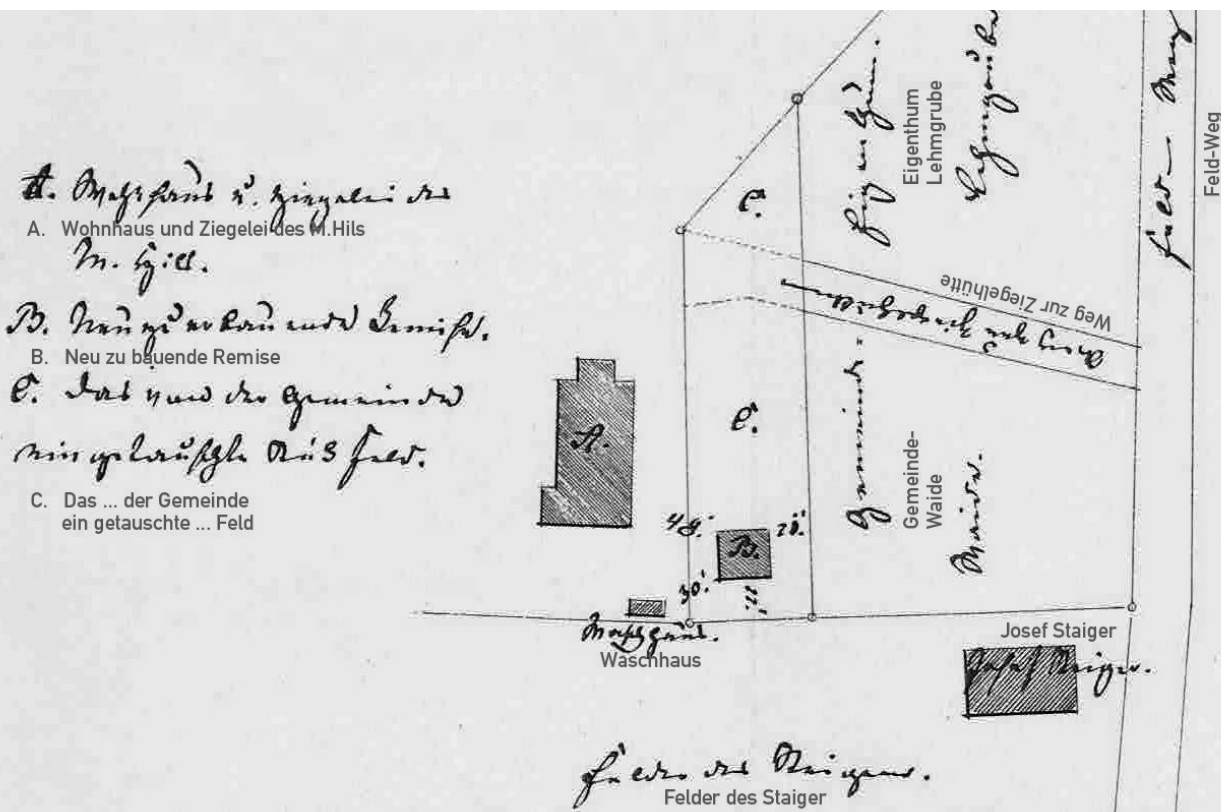 A. Wohnhaus u. Ziegelei des
A. Wohnhaus und Ziegelei des M.Hils
M. Hils.
B. Neu zu erbauende Remise.
B. Neu zu bauende Remise
C. Das von der Gemeinde
eingetauschte Feld.
C. Das ... der Gemeinde
ein getauschte ... Feld
C.
Eigenthum.
Eigenthum
Lehmgrube
Lehmgrube
Feld-Weg
Feld-Weg
Weg zur Ziegelhütte
Weg zur Ziegelhütte
A.
C.
Gemeinde-
Gemeinde-
Waide
Waide.
B.
20.'
30.'
Waschhaus.
Waschhaus
Josef Staiger
Josef Staiger.
Felder des Staigers.
Felder des Staiger